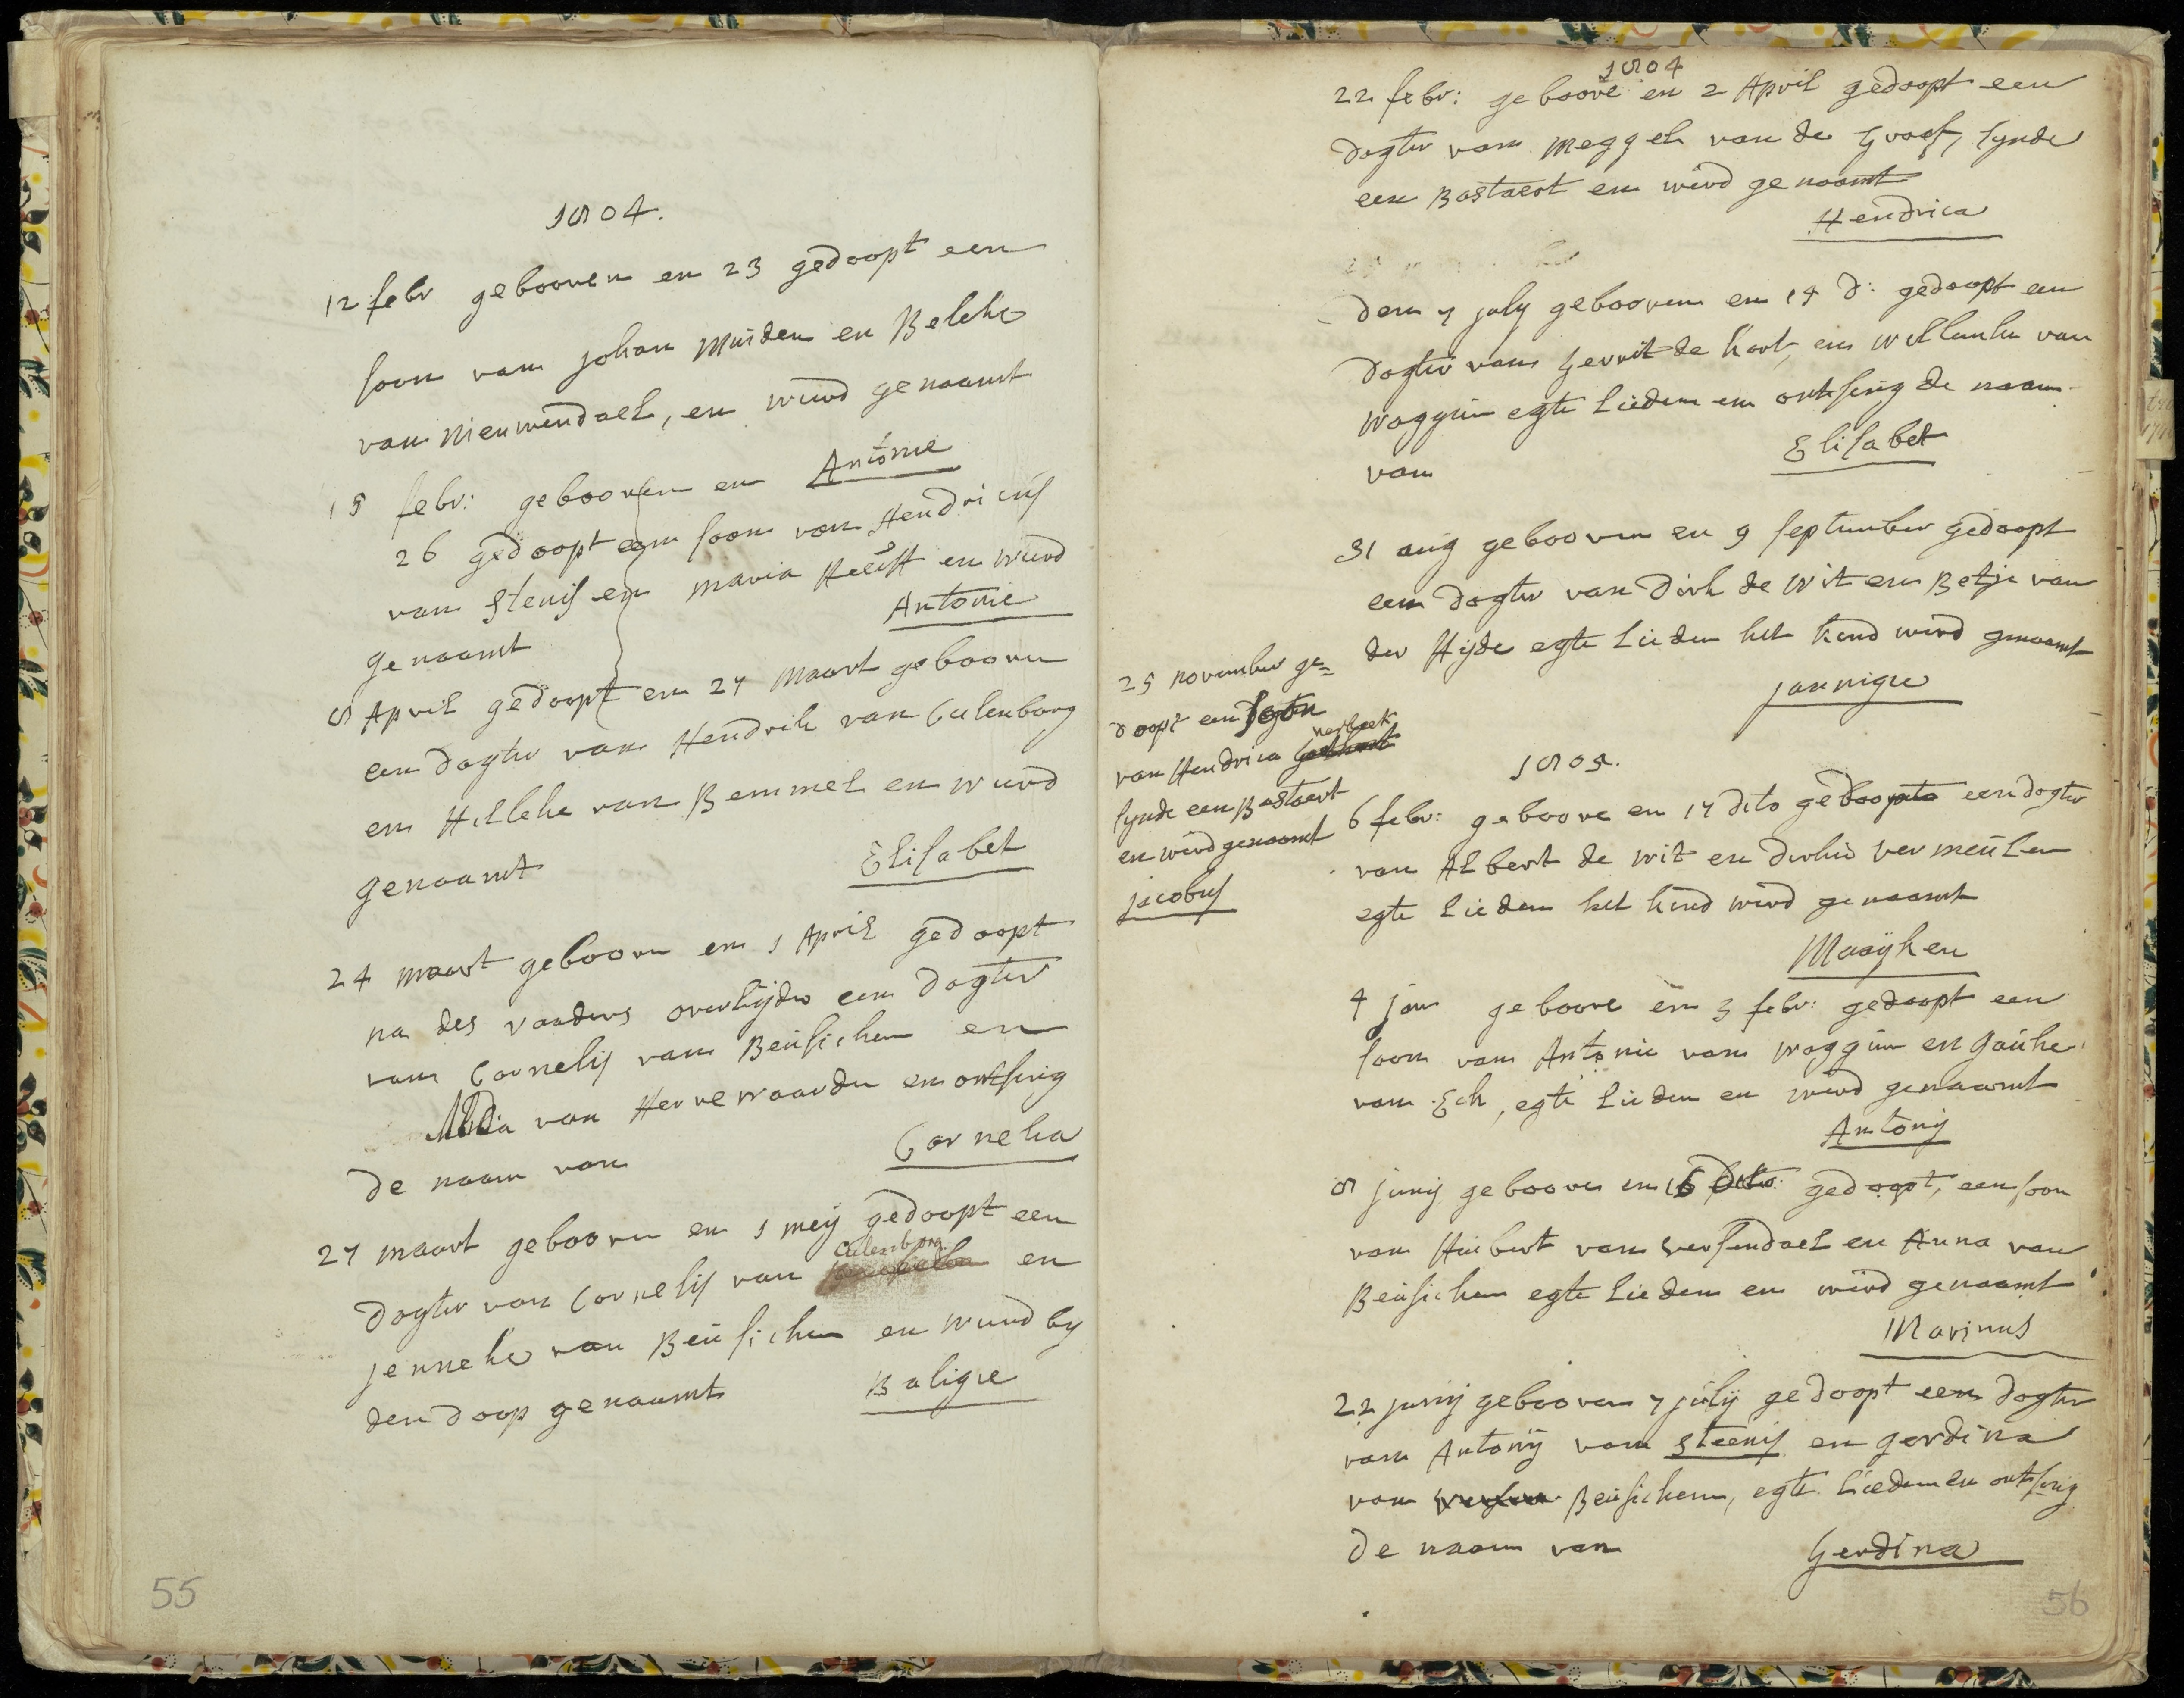 1804.
12 febr gebooren en 23 gedoopt een
soon van Johan Muiden en Beleke
van Nieuwendael, en wierd genaamt
Antonie
15 febr: gebooren en
26 gedoopt een soon van Hendricus
van Stenis en maria Heust en wierd
genaamt
Antonie
8 April gedoopt en 27 Maart gebooren
een dogter van Hendrik van Culenborg
en Hilleke van Bemmel en wierd
genaamt
Elisabet
24 maart gebooren en 1 April gedoopt
na des vaaders overlijden een dogter
van Cornelis van Beusichem en
Alida van Herrewaarden en ontfing
de naam van
Cornelia
27 maart gebooren en 1 meij gedoopt een
Culenborg
dogter van Cornelis van en
Jenneke van Beusichem en wierd by
den doop genaamt
Baligie
55
1804
22 febr: geboore en 2 April gedoopt een
dogter van Meggel van de Graaf, synde
een Bastaert en wierd genaamt
Hendrica
den 7 july gebooren en 14 d: gedoopt een
dogter van Gerrit de Kort, en Willemke van
Woggum egte Lieden en ontfing de naam
van
Elisabet
31 aug gebooren en 9 september gedoopt
een dogter van Dirk de Wit en Betje van
der Hijde egte Lieden het kind wierd genaamt
jannigie
25 november ge=
doopt een
verbeek
van Hendrica
synde een Bastaert
en wierd genaamt
jacobus
1805.
6 febr: geboore en 17 dito gedoopt een dogter
van Albert de Wit en Dirkie Vermeulen
egte Lieden het kind wierd genaamt
Maaÿken
4 jan geboore en 3 febr: gedoopt een
soon van Antonie van Woggum en Jaüke
van Eck, egte Lieden en wierd genaamt
Antonij
8 junij geboore en 16 dito gedoopt, een soon
van Huibert van Versendael en Anna van
Beusichem egte Lieden en wierd genaamt
Marinus
22 junij gebooren 7 julij gedoopt een dogter
van Antonij van Steenis en gerdina
van Beusichem, egte Lieden en ontfing
de naam van
Gerdina
56